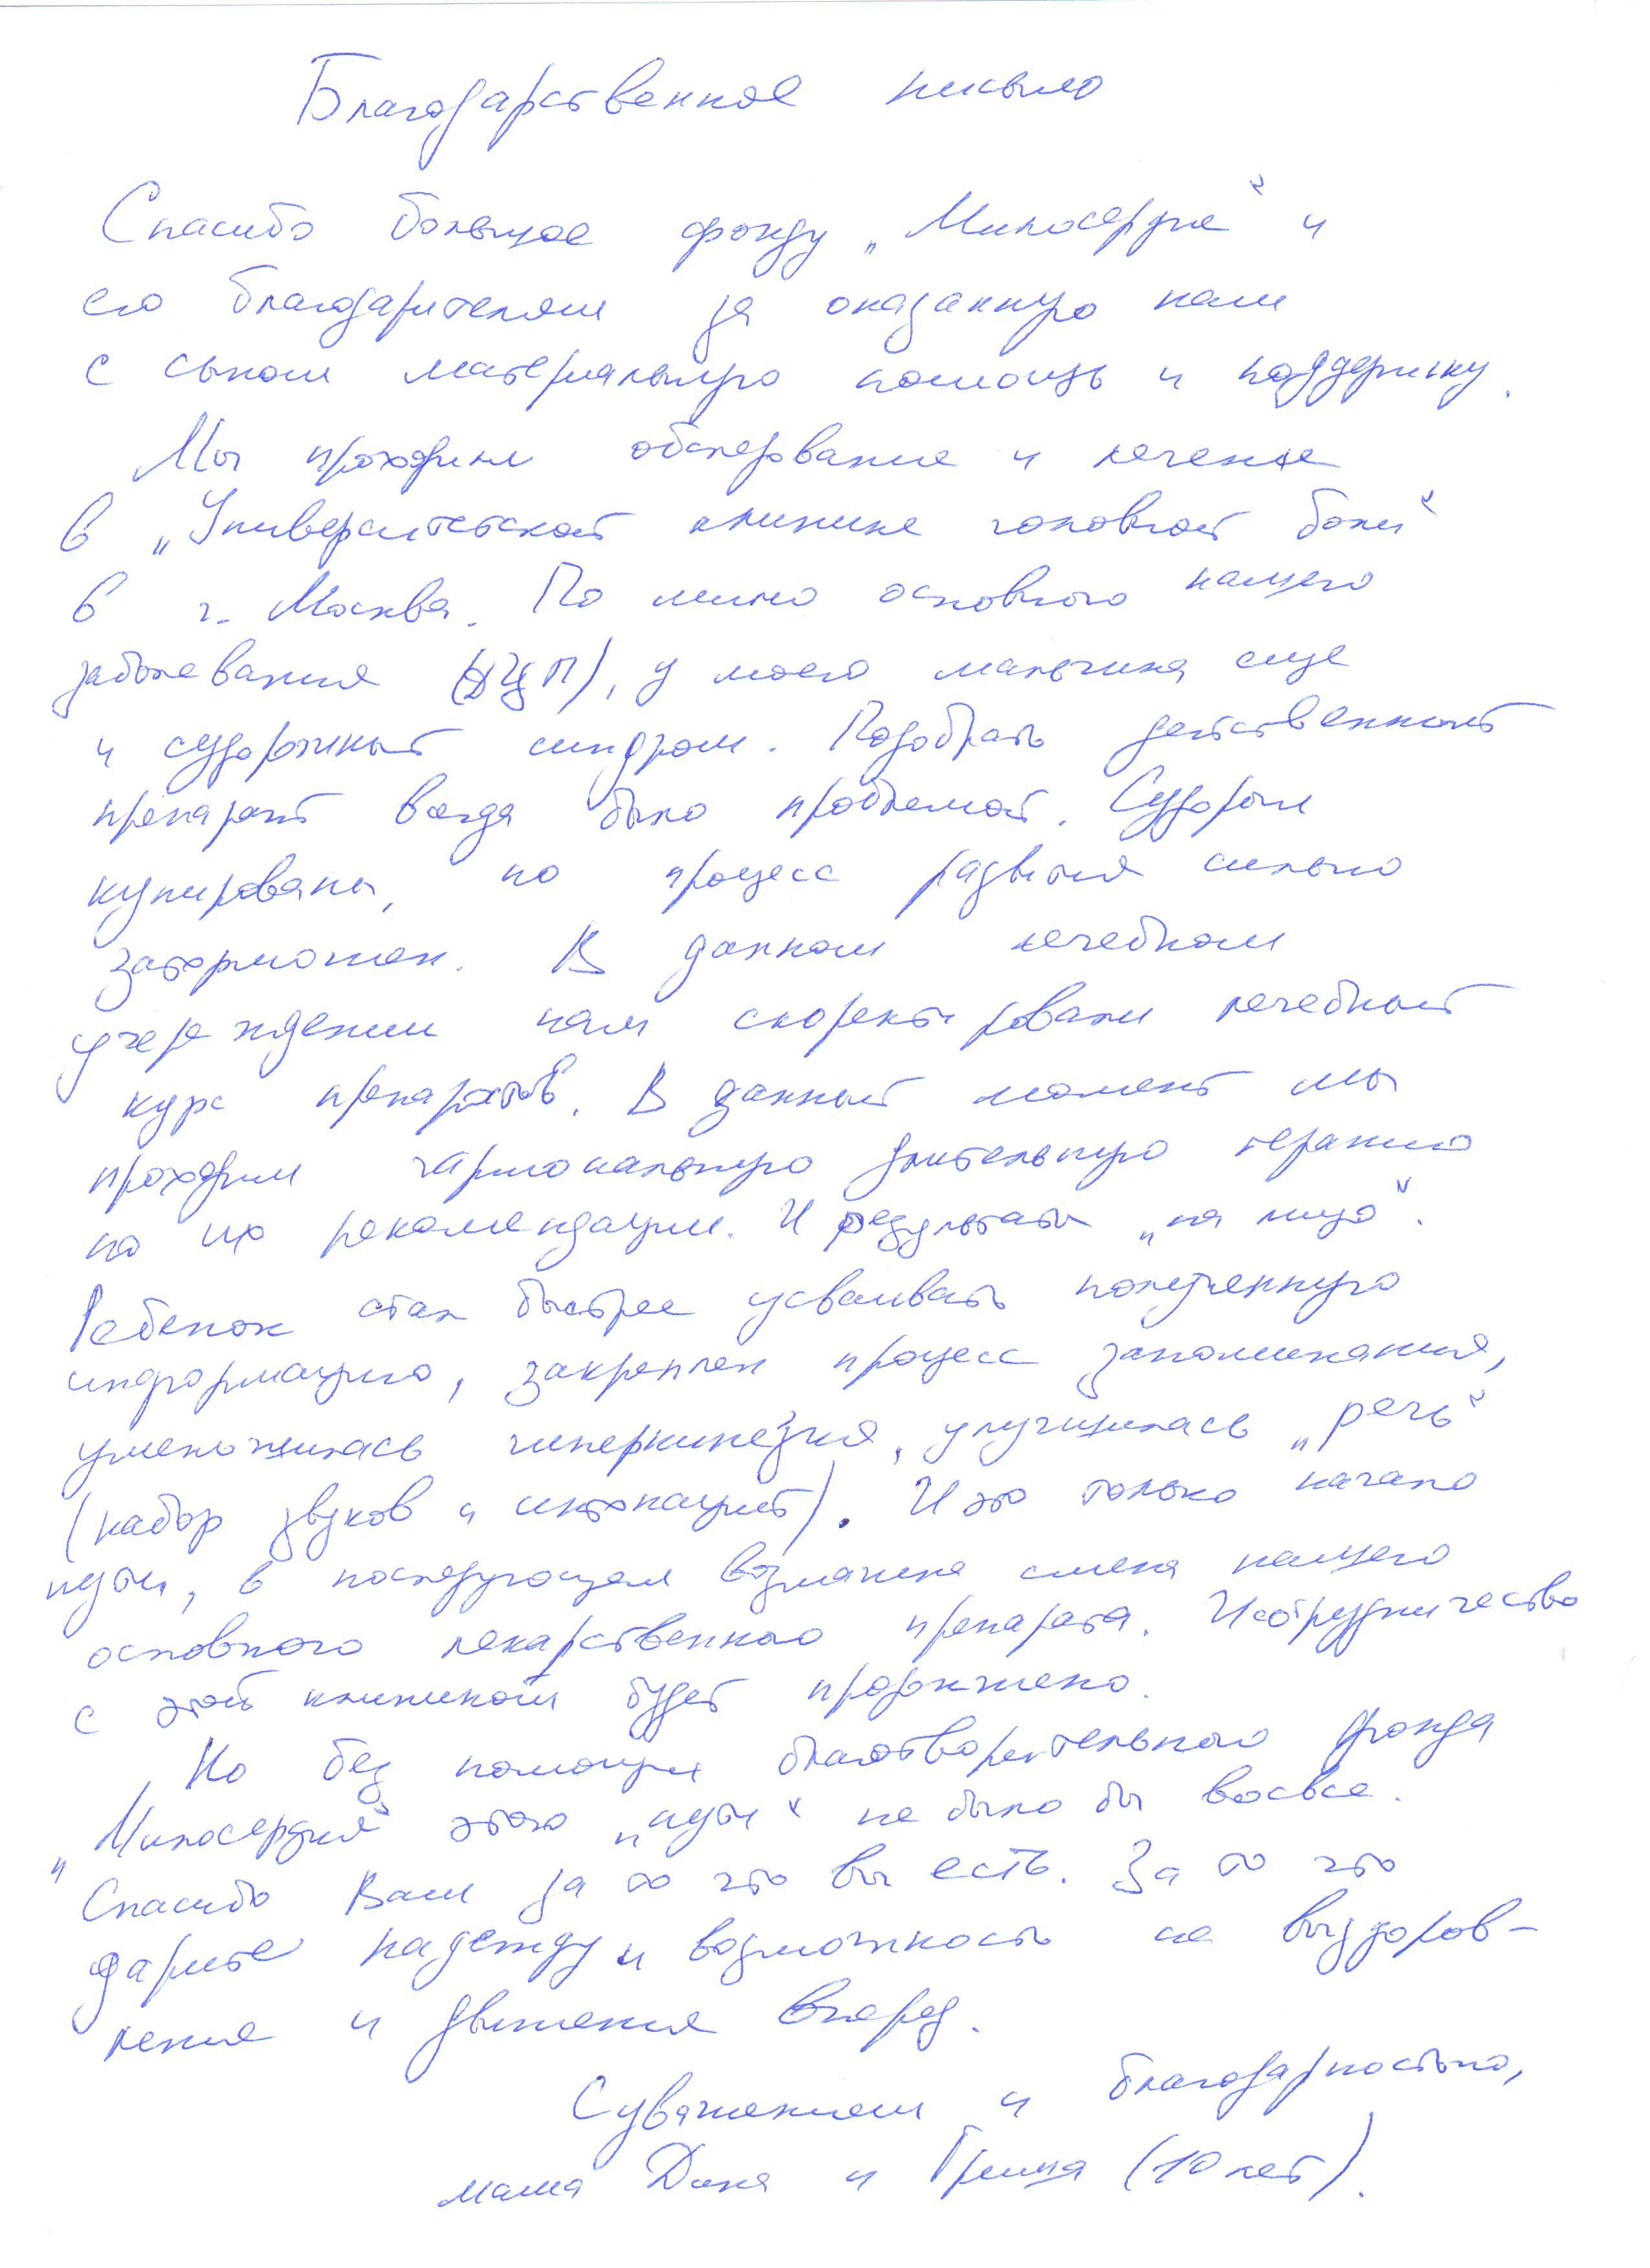 Благодарственное письмо
Спасибо большое фонду „Милосердие" и
его благодарителям за оказанную нам
с сыном материальную помощь и поддержку.
Мы проходили обследование и лечение
в „Университетской клинике головной боли"
в г. Москва. По мимо основного нашего
заболевания (ДЦП), у моего мальчика еще
и судорожный синдром. Подобрать действенный
препарат всегда было проблемой. Судороги
купированы, но процесс развития сильно
заторможен. В данном лечебном
учереждении нам скоректировали лечебный
курс препаратов. В данный момент мы
проходим гармональную длительную терапию
по их рекомендации. И результаты „на лицо".
Ребенок стал быстрее усваивать полученную
информацию, закреплен процесс запоминания,
уменьшилась гиперкинезия, улучшилась „речь"
(набор звуков и интонаций). И это только начало
пути, в последующем возможна смена нашего
основного лекарственного препарата. И сотрудничество
с этой клиникой будет продолжено.
Но без помощи благотворительного фонда
„Милосердия" этого „пути" не было бы вовсе.
Спасибо Вам за то что вы есть. За то что
дарите надежду и возможность на выздоров-
ление и движения вперед.
С уважением и благодарностью,
мама Дина и Гриша (10 лет).